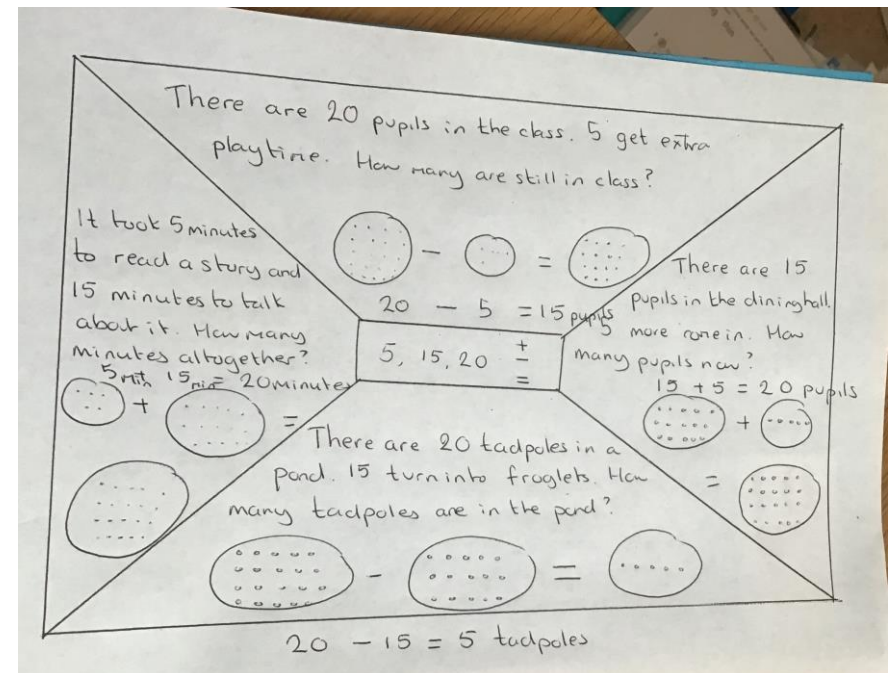 There are 20 pupils in the class. 5 get extra
playtime. How many are still in class?
20 - 5 = 15 pupils
It took 5 minutes
to read a story and
15 minutes to talk
about it. How many
minutes altogether?
5 min + 15 min = 20 minutes
5, 15, 20 + - =
There are 15
pupils in the dining hall.
5 more come in. How
many pupils now?
15 + 5 = 20 pupils
There are 20 tadpoles in a
pond. 15 turn into froglets. How
many tadpoles are in the pond?
20 - 15 = 5 tadpoles